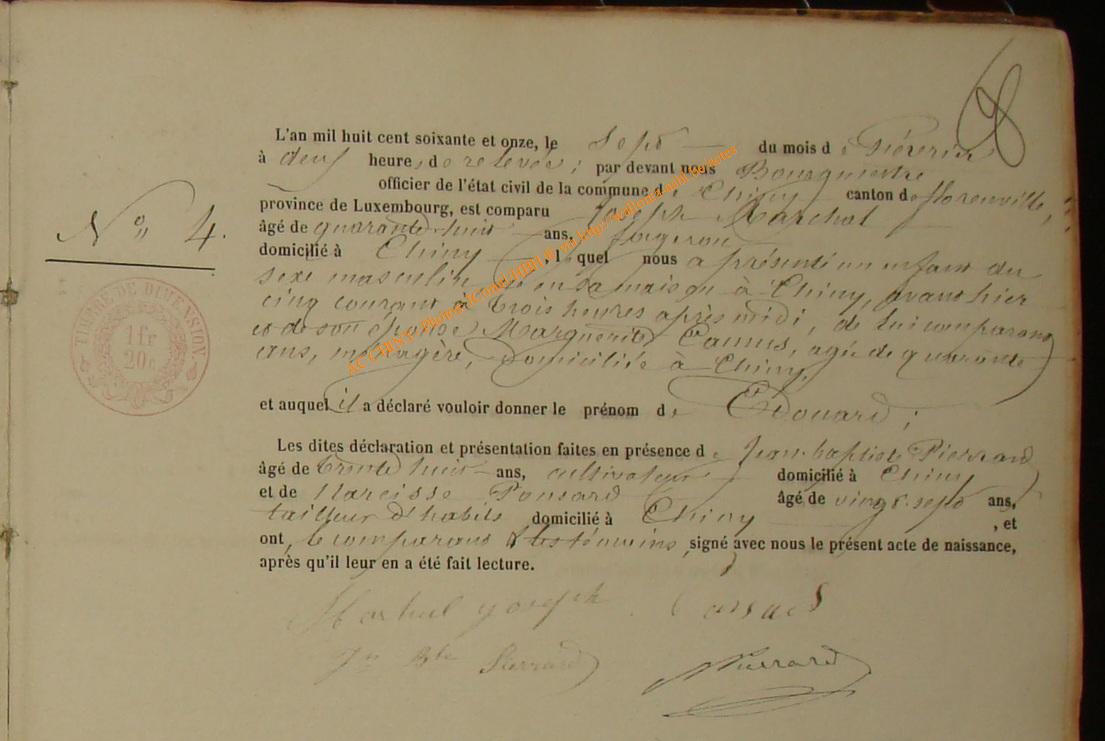 8
L'an mil huit cent soixante et onze, le Sept du mois de Février
à deux heures, de relevée; par devant nous Bourgmestre
officier de l'état civil de la commune de Chiny canton de florenville,
province de Luxembourg, est comparu Joseph Marchal
âgé de quarante-huit ans, forgeron
domicilié à Chiny, lequel nous a présenté un enfant du
sexe masculin né en sa maison à Chiny, avant hier
cinq courant à trois heures après midi, de lui comparant
et de son épouse Marguerite Camus, agée de quarante
ans, ménagère, domiciliée à Chiny,
et auquel il a déclaré vouloir donner le prénom de Edouard;
Les dites déclaration et présentation faites en présence de Jean-baptiste Pierrard
âgé de trente huit ans, cultivateur domicilié à Chiny
et de Narcisse Ponsard âgé de vingt-sept ans,
tailleur d'habits domicilié à Chiny, et
ont, le comparant & les témoins, signé avec nous le présent acte de naissance,
après qu'il leur en a été fait lecture.
Marchal joseph
Jn Bte Pierrard Pierrard
No 4.
TIMBRE DE DIMENSION.
1fr
20c